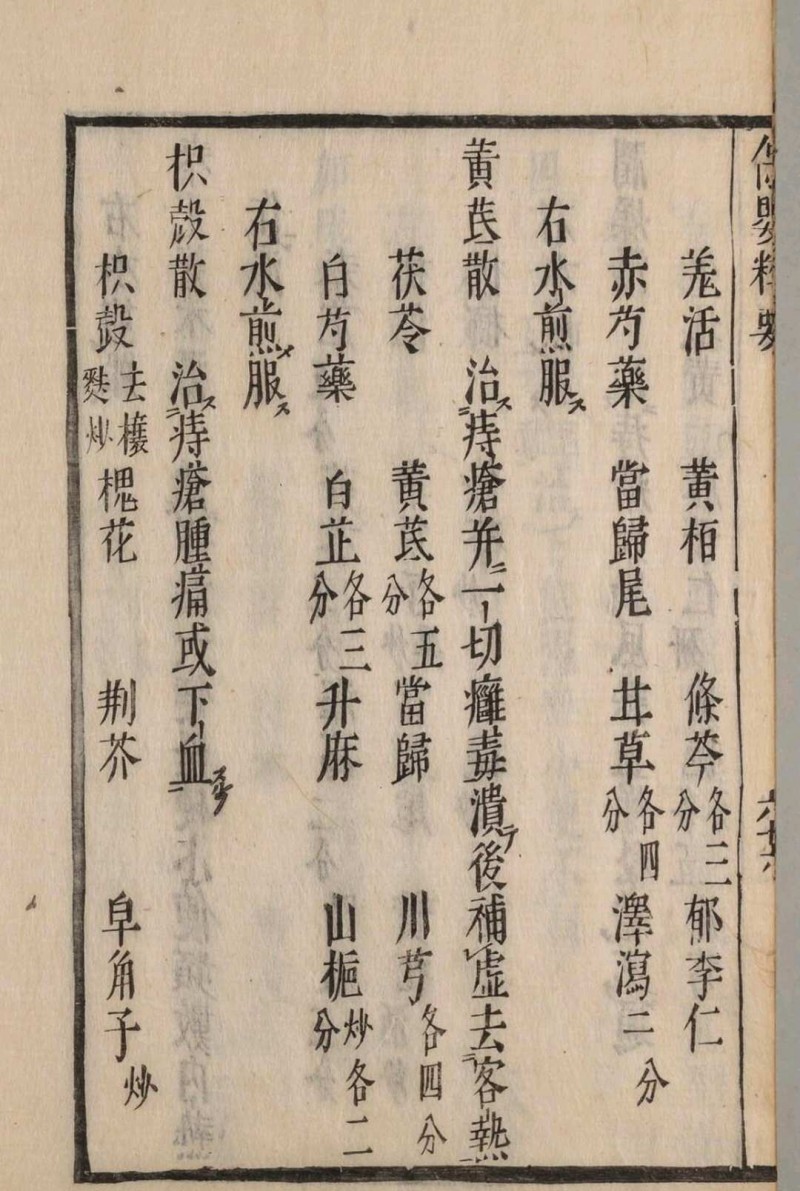 羗活　黄栢　條芩各三分　郁李仁
赤芍藥　當歸尾　甘草各四分　澤瀉二分
右水煎服ス
黄芪散　治ス痔瘡并ニ一切癰毒潰テ後補虚去客熱
茯苓　黄芪各五分　當歸　川芎各四分
白芍藥　白芷各三分　升麻　山梔炒各二分
右水煎ス服ス
枳殼散　治ス痔瘡腫痛或下血
枳殼去穰麩炒　槐花　荆芥　皁角子炒